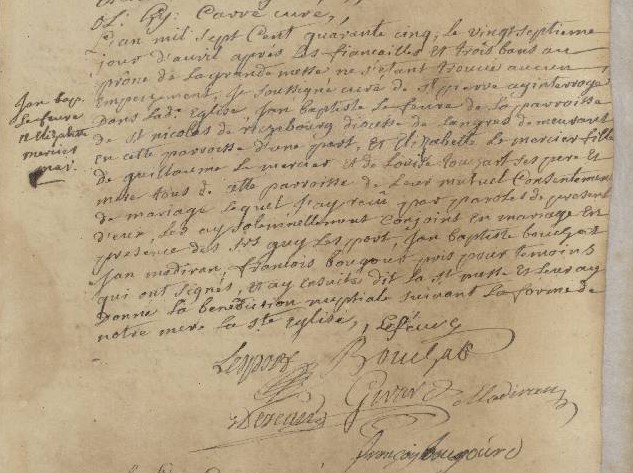 Carré curé,
L'an mil sept Cent quarante cinq, le vingt septieme
jour d'avril après les fiancailles et trois bans au
prône de la grande messe ne s'etant trouvé aucun
Empeschement, je soussigné curé de St pierre ay interrogé
Dans lad. Eglise, Jan baptiste le feure de la parroisse
de St nicolas de diocese de Langres demeurant
en cette parroisse d'une part, et Elizabette le mercier fille
de guillaume le mercier et de Louise touzart ses pere et
mere tous de cette parroisse de Leur mutuel Consentement
de mariage lequel j'ay par paroles de present
d'eux, les ay solemnellement conjoint en mariage en
presence des Srs guy Les port, Jan baptiste
Jan madiran, francois bougour pris pour temoins
qui ont signés, et ay ensuite dit la St messe et Leur ay
Donné la benediction nuptiale suivant la forme de
notre mere la Ste Eglise,
Jan bap.
Le feure
et Elizabette
mercier
mar.
Lesport
Madiran
françois